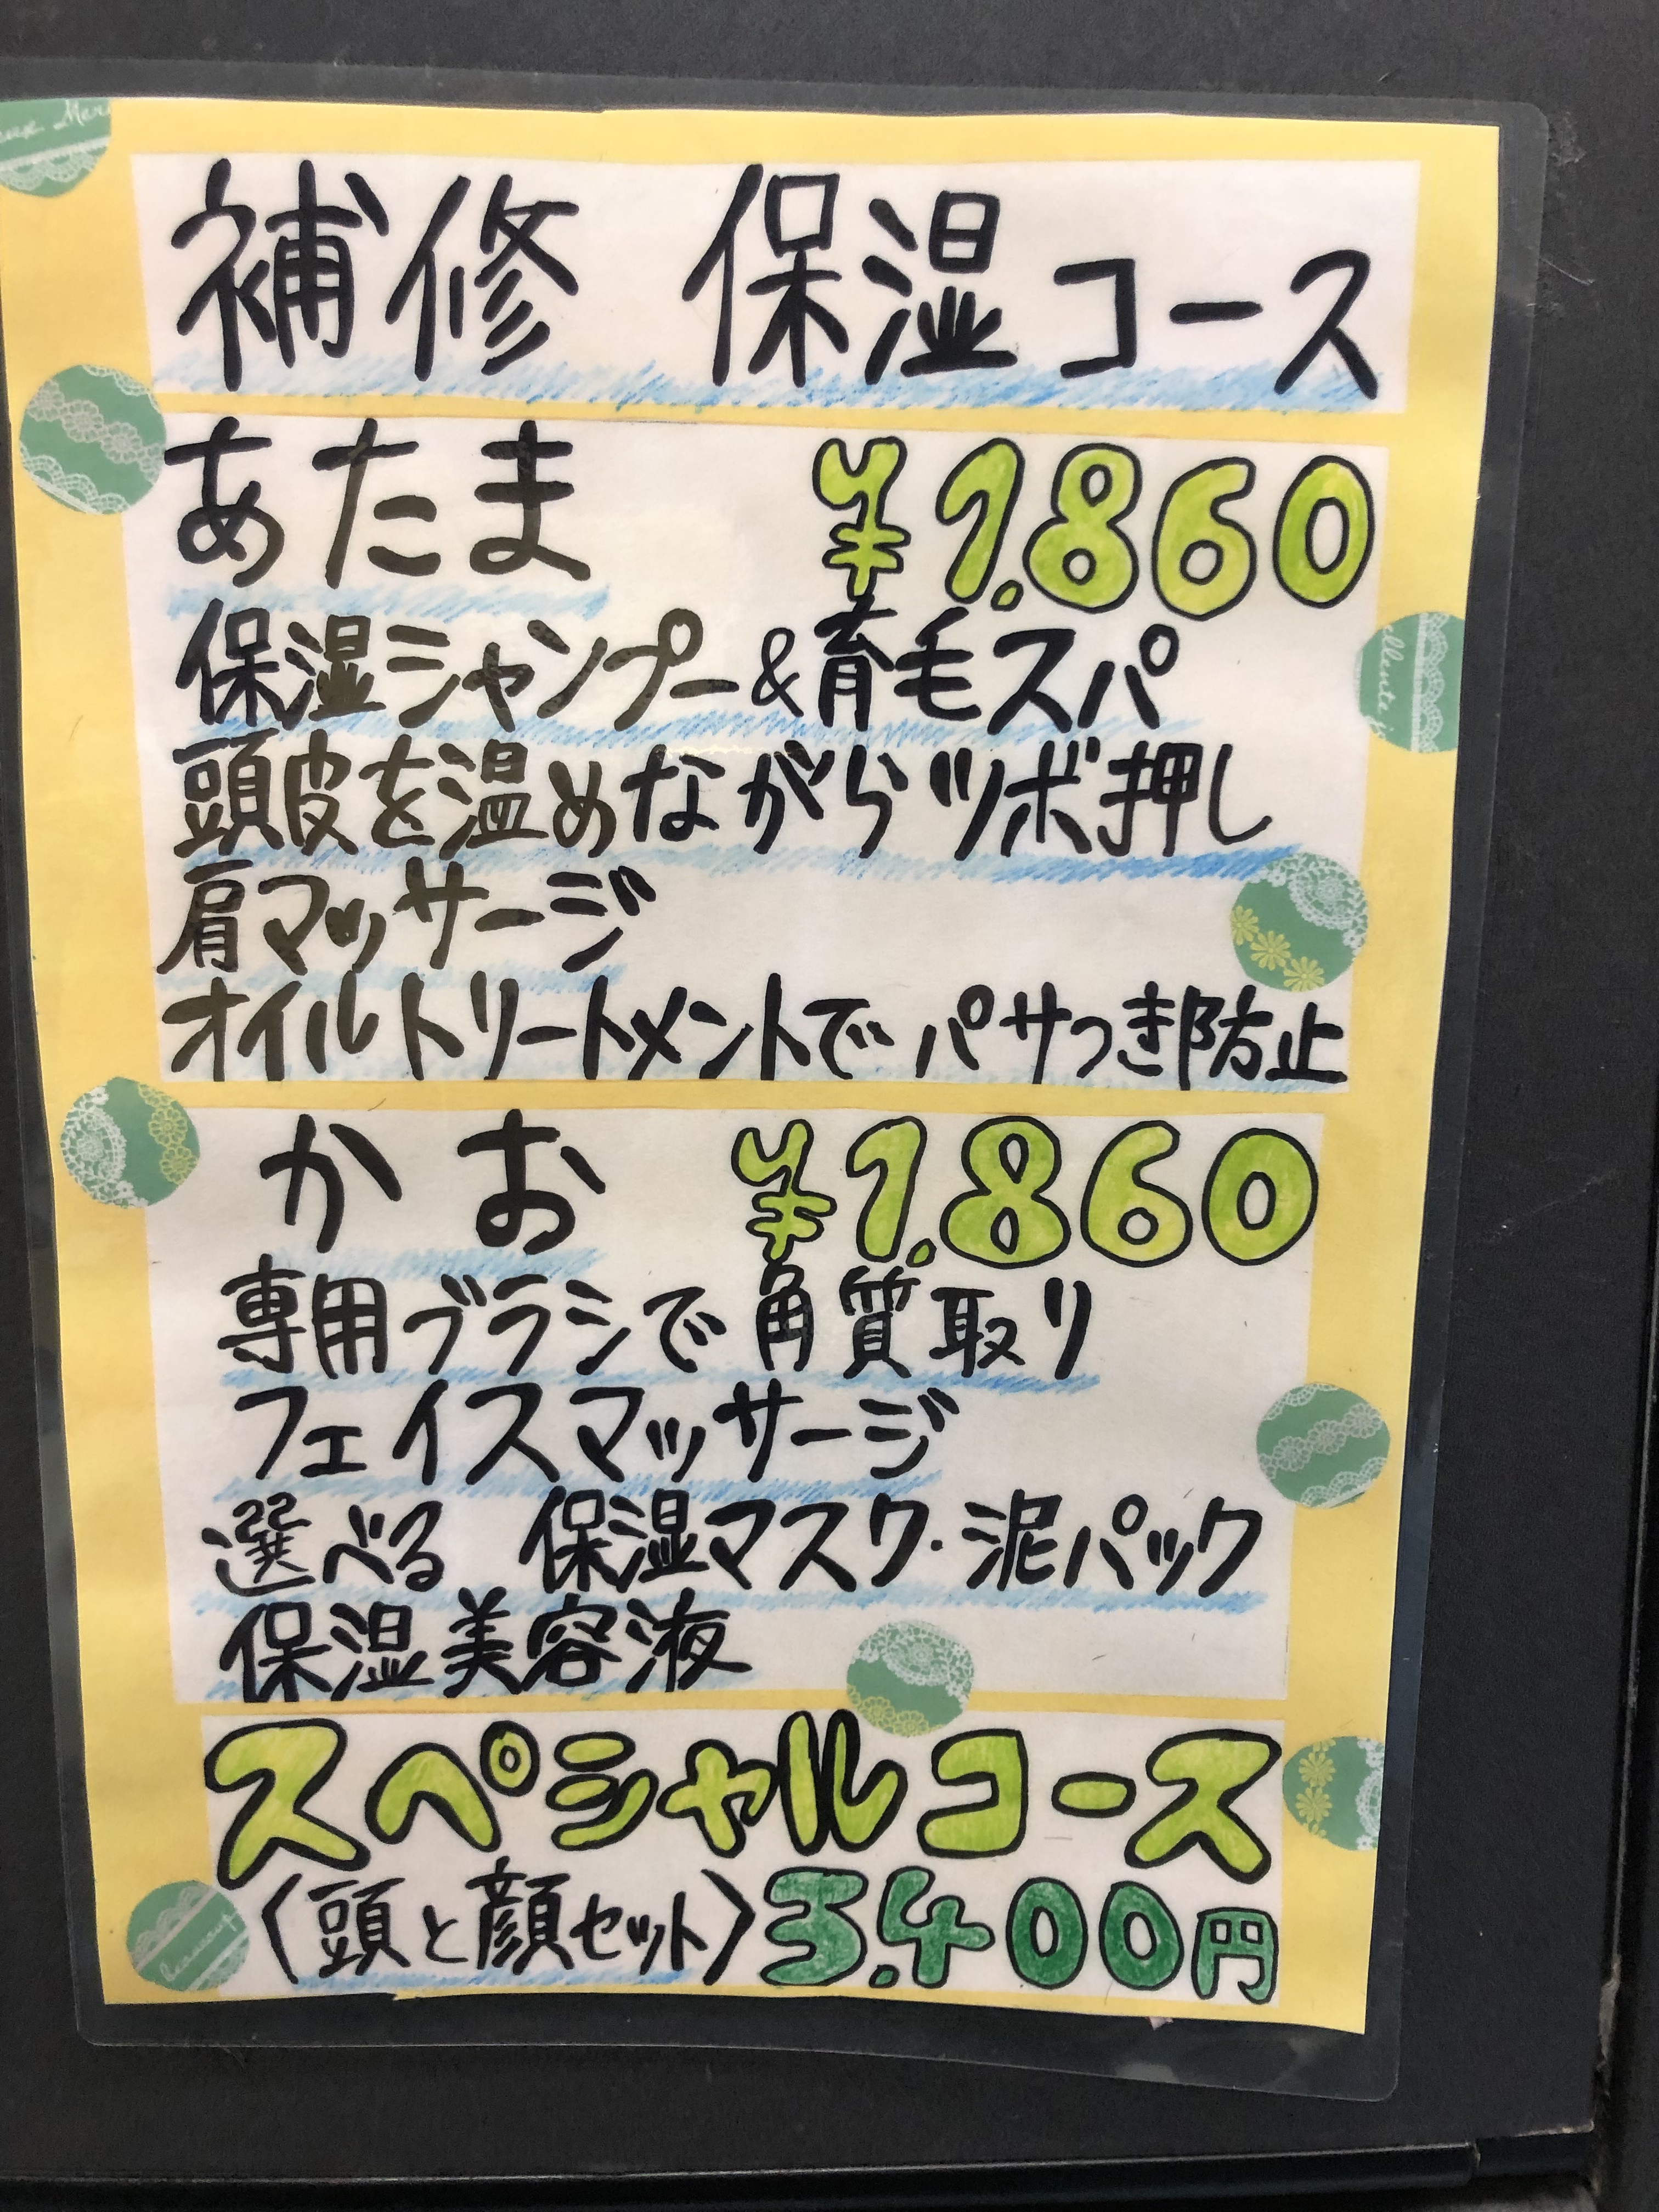 補修 保湿コース
あたま ¥1.860
保湿シャンプー&育毛スパ
頭皮を温めながらツボ押し
肩マッサージ
オイルトリートメントでパサつき防止
かお ¥1.860
専用ブラシで角質取り
フェイスマッサージ
選べる 保湿マスク・泥パック
保湿美容液
スペシャルコース
(頭と顔セット)3.400円